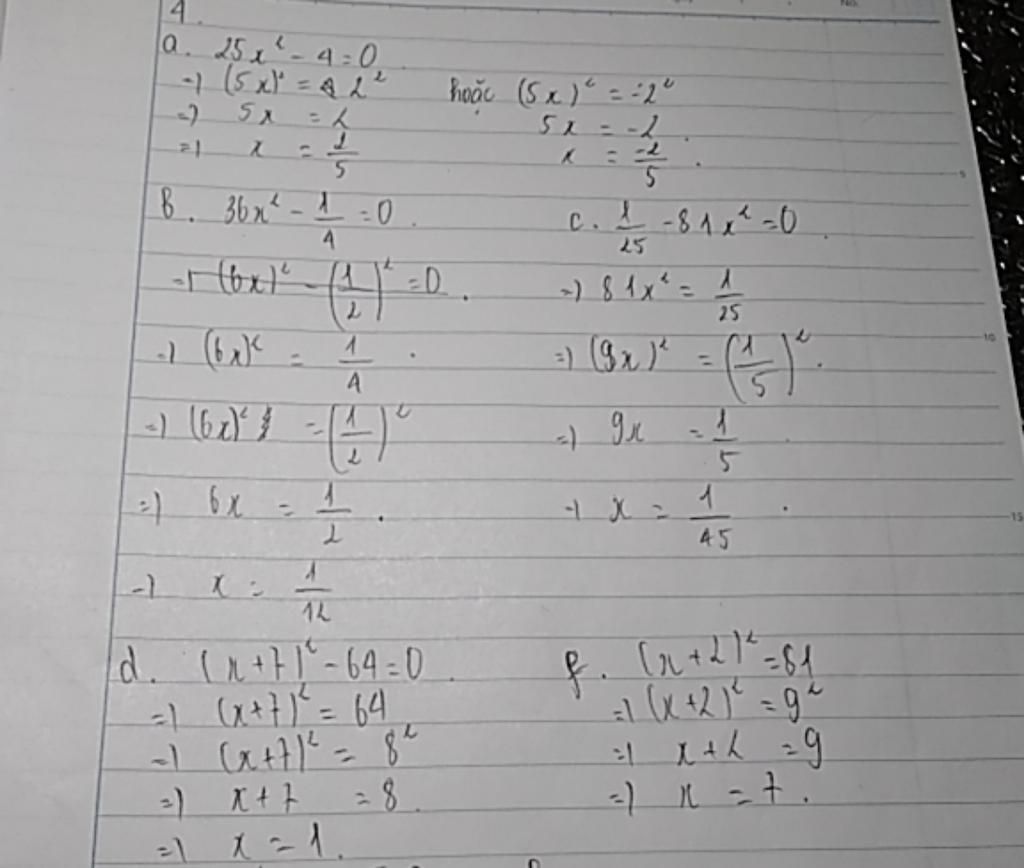 4.
a. 25x² - 4 = 0
=> (5x)² = 2² hoặc (5x)² = -2²
=> 5x = 2 5x = -2.
=> x = 2/5 x = -2/5.
b. 36x² - 1/4 = 0.
=> (6x)² - (1/2)² = 0.
=> (6x)² = 1/4.
=> (6x)² = (1/2)²
=> 6x = 1/2.
=> x = 1/12
c. 1/25 - 81x² = 0.
=> 81x² = 1/25
=> (9x)² = (1/5)².
=> 9x = 1/5
=> x = 1/45.
d. (x+7)² - 64 = 0.
=> (x+7)² = 64
=> (x+7)² = 8²
=> x+7 = 8.
=> x = 1.
f. (x+2)² = 81
=> (x+2)² = 9²
=> x+2 = 9
=> x = 7.